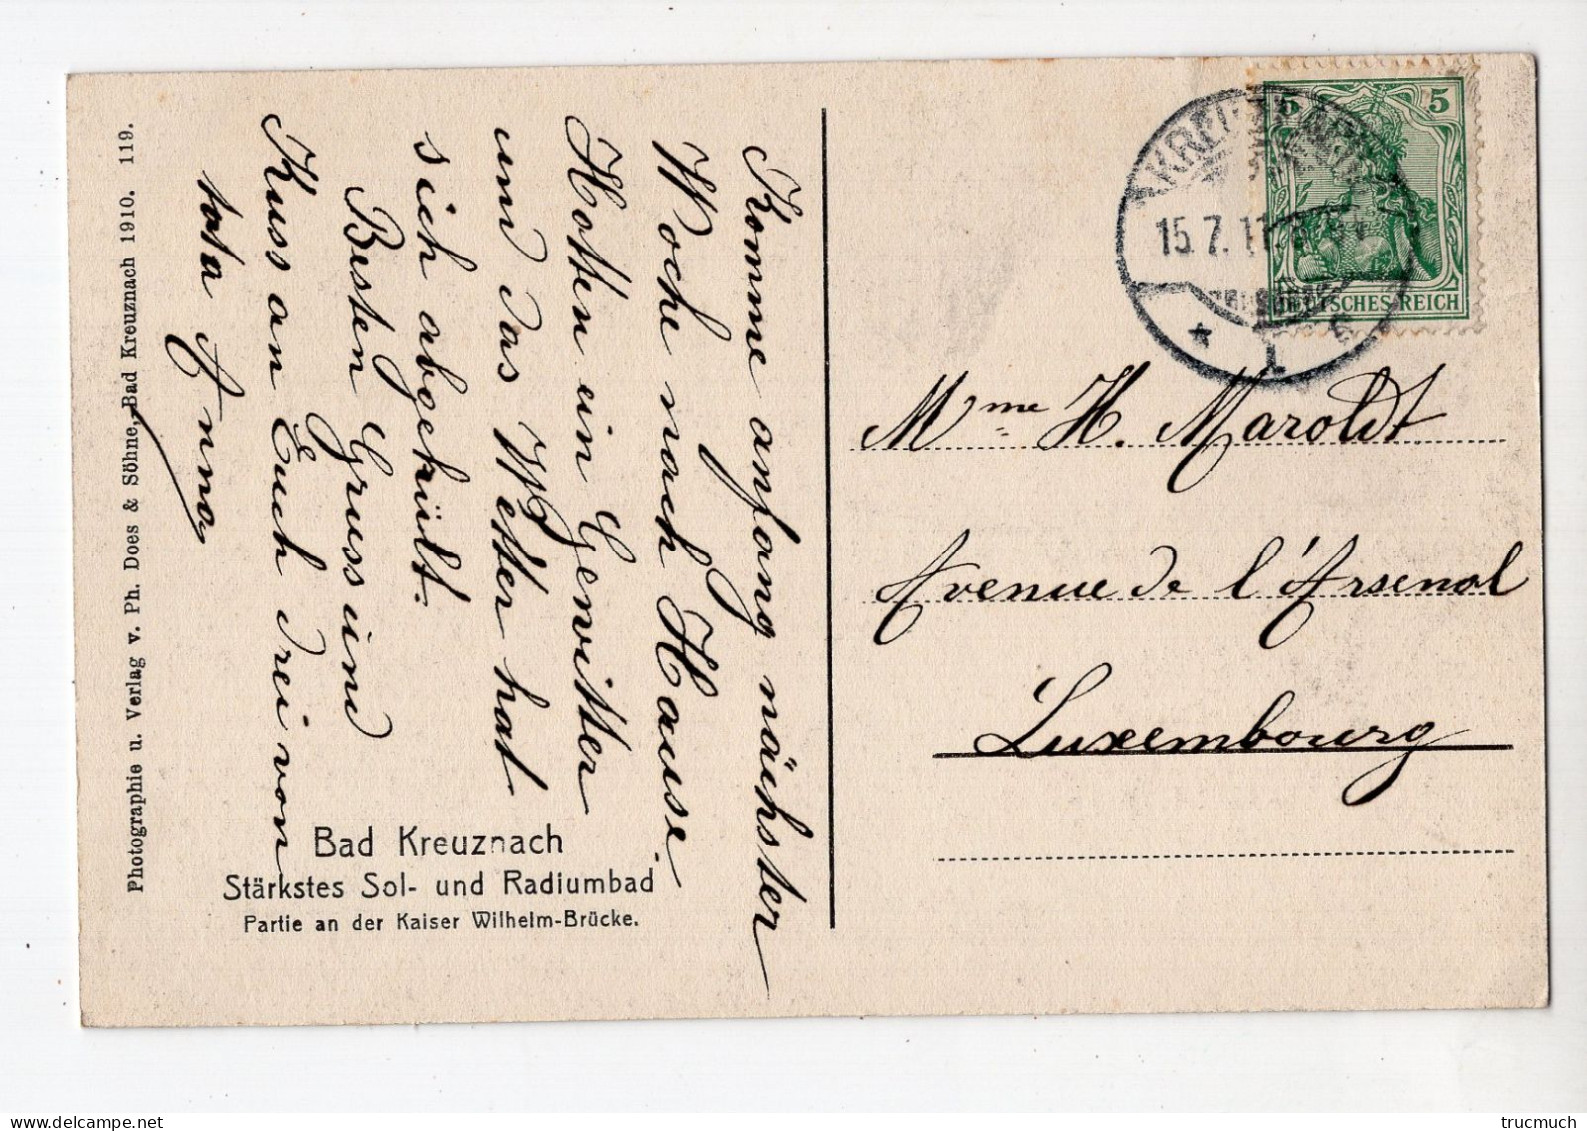 Komme anfang nächster
Woche nach Hause.
Hatten ein Gewitter
und das Wetter hat
sich abgekült.
Besten Gruss und
Kuss an Euch drei von
tata Anna
Bad Kreuznach
Stärkstes Sol- und Radiumbad
Partie an der Kaiser Wilhelm-Brücke.
Photographie u. Verlag v. Ph. Does & Söhne, Bad Kreuznach 1910. 119.
5 5
DEUTSCHES REICH
KREUZNACH
15.7.11.
Mme H. Maroldt
Avenue de l'Arsenal
Luxembourg
trucmuch